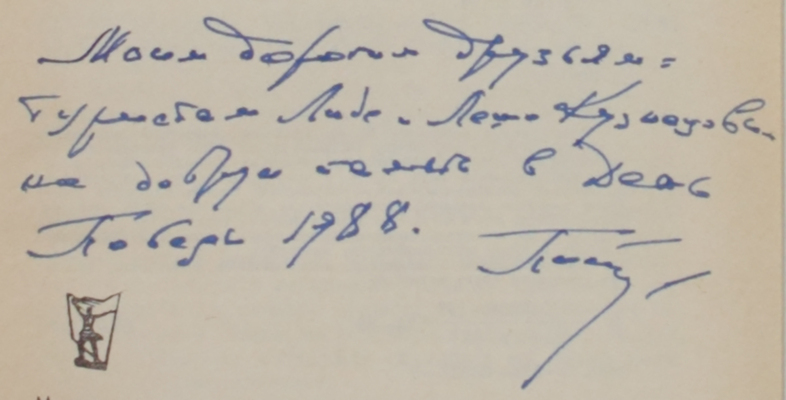 Моим дорогим друзьям =
туристам Лиде и Леше Кузнецовым
на добрую память в День
Победы 1988.